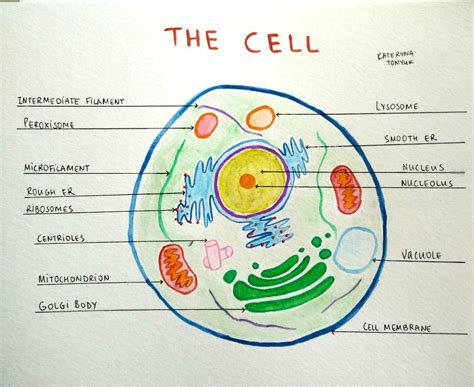 THE CELL
KATERYNA
TONYUK
INTERMEDIATE FILAMENT
PEROXISOME
MICROFILAMENT
ROUGH ER
RIBOSOMES
CENTRIOLES
MITOCHONDRION
GOLGI BODY
LYSOSOME
SMOOTH ER
NUCLEUS
NUCLEOLUS
VACUOLE
CELL MEMBRANE